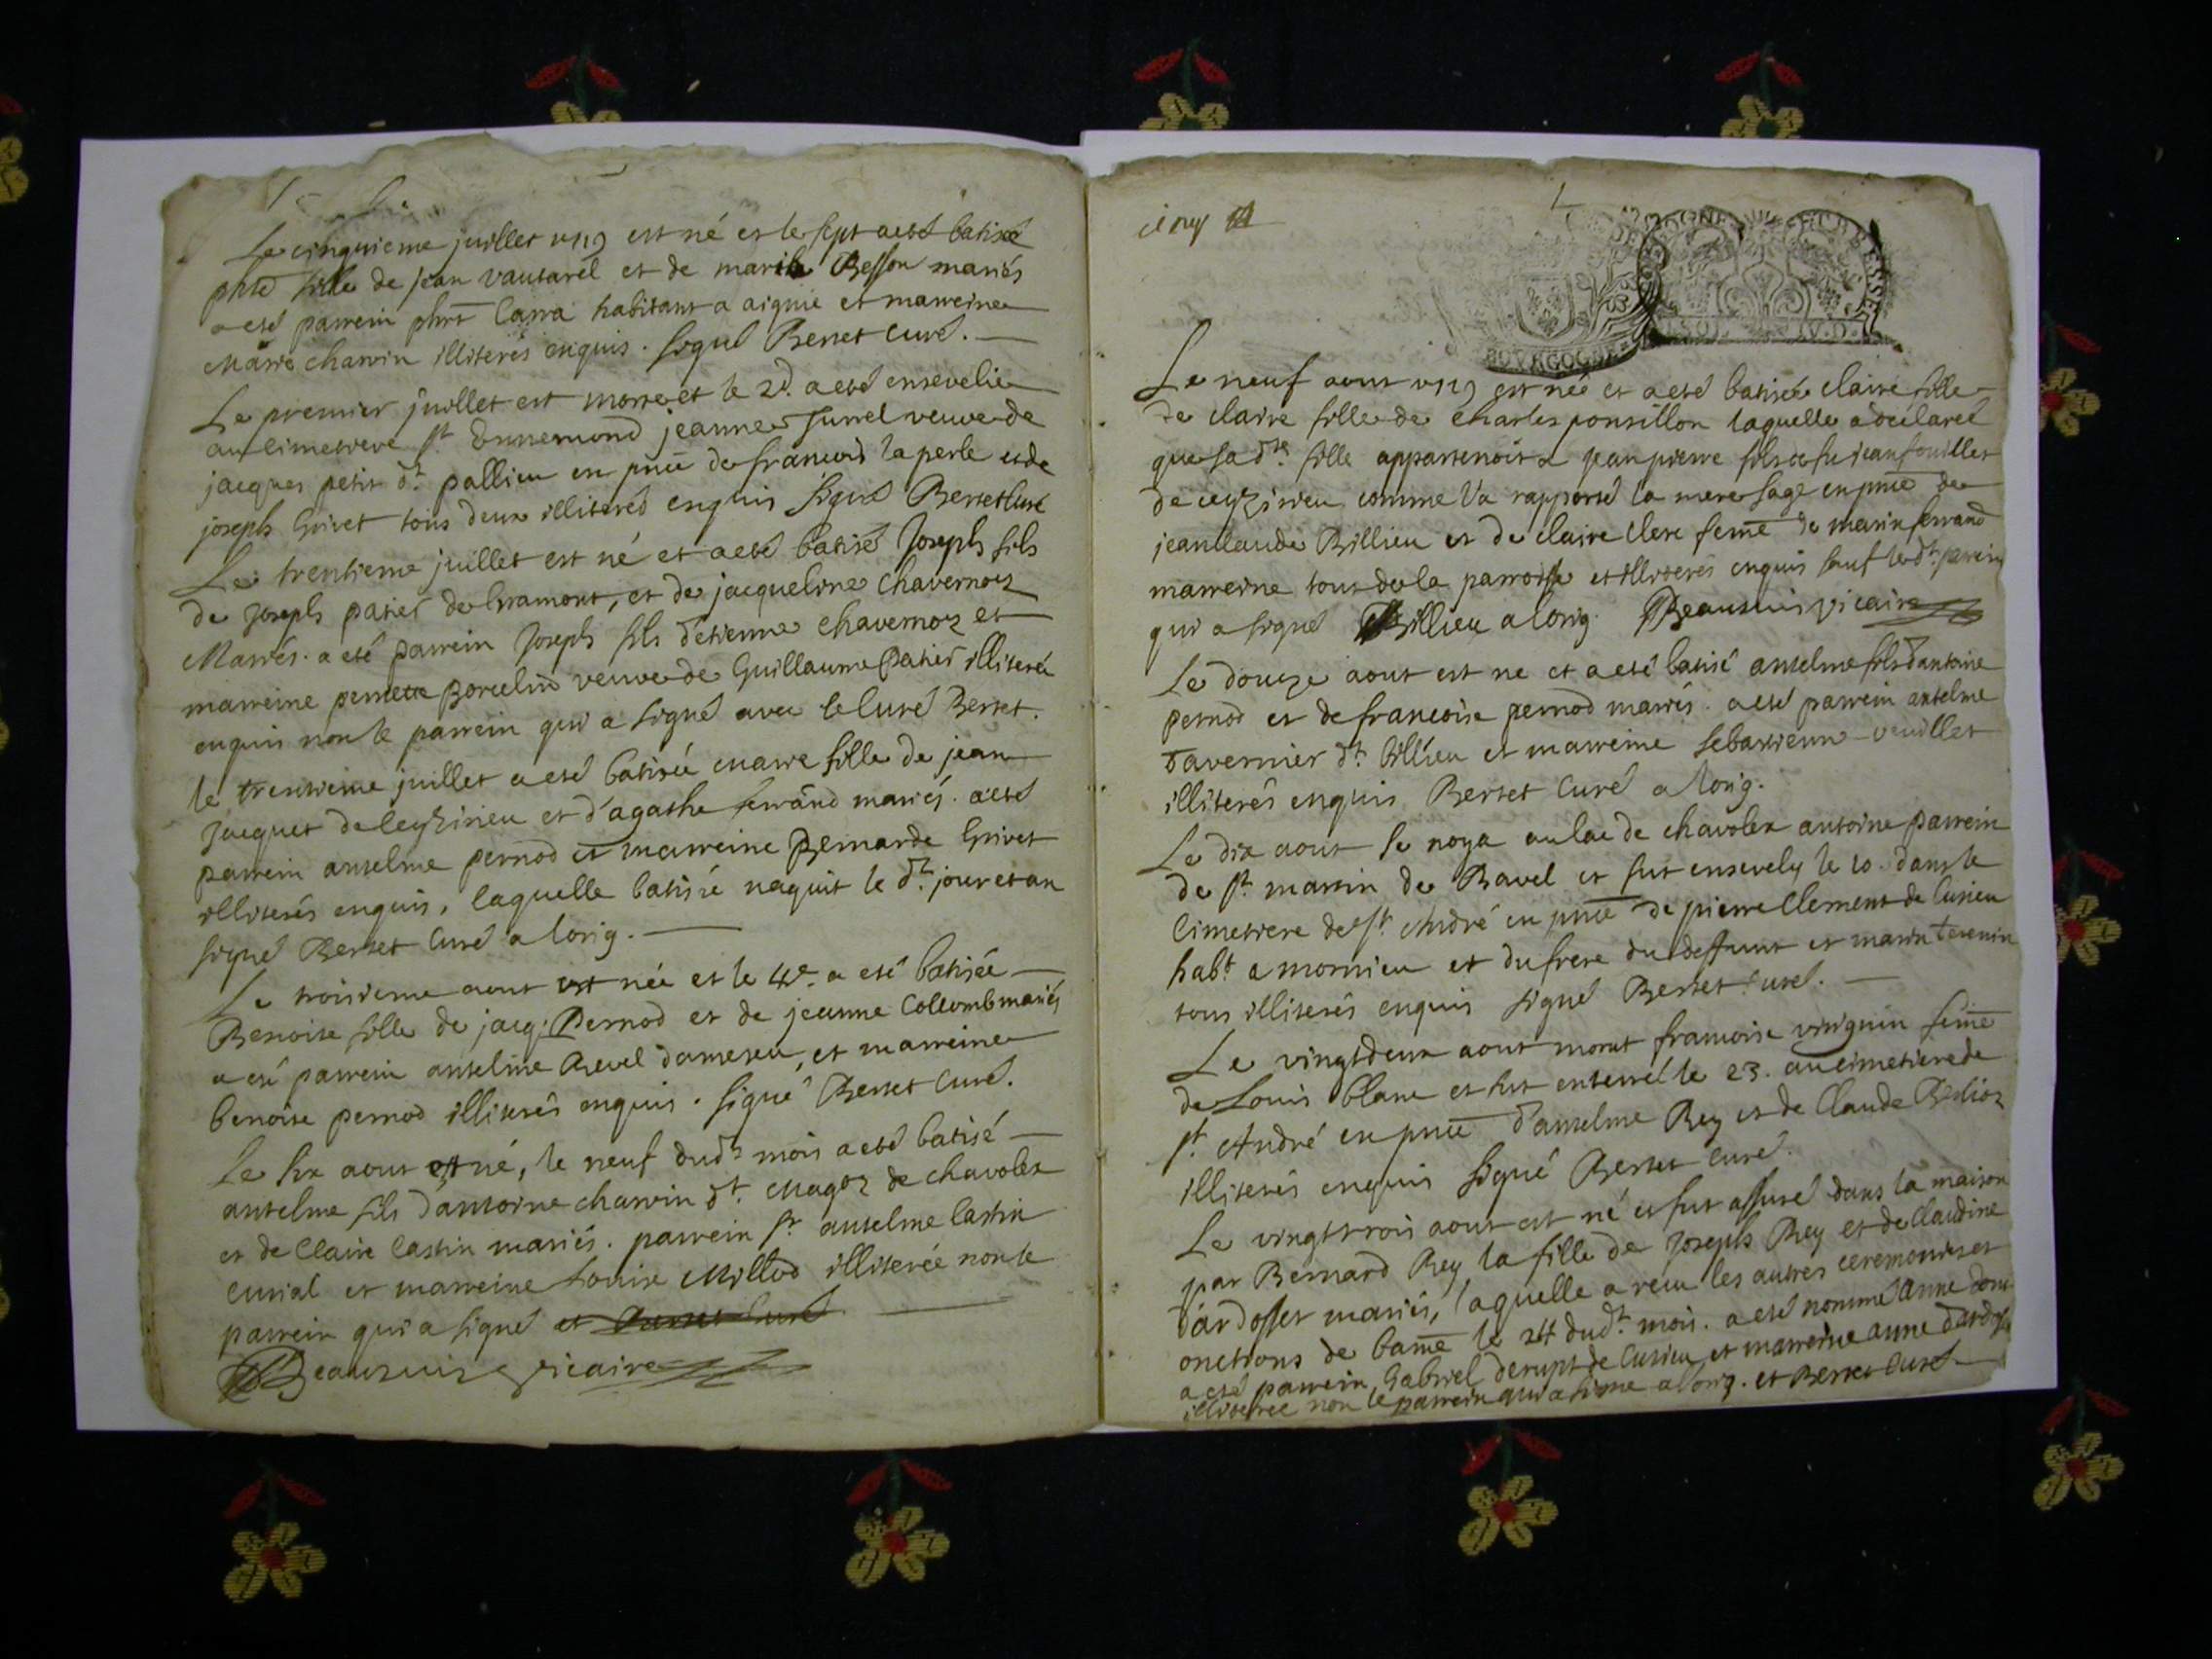 Le cinquieme juillet 1719 est né et le sept a esté batisée
phte fille de jean vautarel et de marie Besson mariés
a esté parrein phrt Carra habitant a aignie et marreine
Marie charvin illiterés enquis. signé Berret curé.
Le premier juillet est morte et le 2d. a esté ensevelie
au cimetiere St Ennemond jeanne Jurrel veuve de
jacques petit dt. pallieu en pnce de francois laperle et de
joseph Grivet tous deux illiterés enquis signé Berret Curé
Le trentieme juillet est né et a esté batisé Joseph fils
de Joseph patier de Gramont, et de jacqueline chavernoz
Mariés. a eté parrein Joseph fils d'etienne chavernoz et
marreine pernette Borcelin veuve de Guillaume Patier illiterés
enquis non le parrein qui a signé avec le Curé Berret.
le trentieme juillet a esté batisée marie fille de jean
Jacquet de Ceyzirieu et d'agathe ferrand mariés. a esté
parrein antelme pernod et marreine Bernarde Grivet
illiterés enquis, laquelle batisée naquit le dt. jour et an
signé Berret Curé a lorig.
Le troisieme aout est née et le 4e. a eté batisée
Benoite fille de jacq. Pernod et de jeanne Collomb mariés
a eté parrein antelme Revel dameseu, et marreine
benoite pernod illiterés enquis. signé Berret Curé.
Le six aout est né, le neuf dudt mois a esté batisé
antelme fils d'antoine charvin dt. Magoz de chavolex
et de Claire Castin mariés. parrein Sr. antelme Castin
curial et marreine Louise Millod illiterée non le
parrein qui a signé et Berret Curé
Beaupuis vicaire
Le neuf aout 1719 est née et a esté batisée claire fille
de claire fille de charles ponsillon laquelle a déclaré
que sa dte. fille appartenoit a jean pierre fils de fu jean fouillet
de ceyzirieu comme l'a rapporté la mere sage en pnce de
jean claude Billieu et de claire clerc feme de marin ferrand
marreine tous de la parroisse et illiterés enquis sauf le dt. parrein
qui a signé Billieu a lorig. Beaupuis vicaire
Le douze aout est ne et a esté batisé antelme fils d'antoine
pernod et de francoise pernod mariés. a esté parrein antelme
Tavernier dt. billieu et marreine sebastienne veuillet
illiterés enquis Berret Curé a lorig.
Le dix aout se noya au lac de chavolex antoine parrein
de St martin de Bavel et fut ensevely le 10. dans le
Cimetiere de St. André en pnce de pierre Clement de Cusieu
habt a mornieu et du frere du deffunt et marin tevenin
tous illiterés enquis signé Berret Curé.
Le vingtdeux aout morut francoise viriguin feme
de Louis blanc et fut enterrée le 23. au cimetiere de
St. André en pnce d'antelme Rey et de Claude Bidioz
illiterés enquis signé Berret Curé.
Le vingttrois aout est né et fut assuré dans la maison
par Bernard Rey, la fille de Joseph Rey et de Claudine
dardosset mariés, laquelle a receu les autres ceremonies et
onctions de bame le 24 dudt. mois. a esté nommé anne dont
a esté parrein Gabriel derupt de Cusieu et marreine anne dardosset
illiterée non le parrein qui a signe a lorig. et Berret Curé